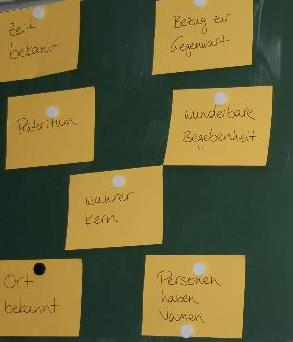 Zeit
bekannt
Bezug zur
Gegenwart
Präteritum
wunderbare
Begebenheit
wahrer
Kern
Ort
bekannt
Personen
haben
Namen